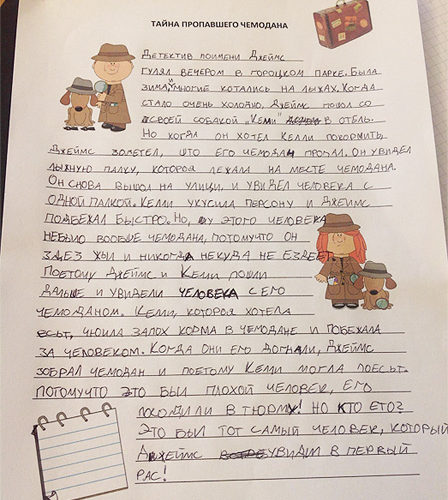 ТАЙНА ПРОПАВШЕГО ЧЕМОДАНА
Детектив поимени Джеймс
гулял вечером в городском парке. Была
зима, и многие котались на лыжах. Когда
стало очень холодно, Джеймс пошол со
своей собакой "Кеми" в отель.
Но когда он хотел Келли покормить,
Джеймс заметел, што его чемодан пропал. Он увидел
лыжную палку, которая лежала на месте чемодана.
Он снова вышол на улици и увидел человека с
одной палкой. Келли укусила персону и Джеймс
подбехал быстро. Но, у этого человека
небыло вообще чемодана, потомучто он
здез жыл и никогда некуда не ездеет.
Поетому Джеймс и Кеми пошли
дальше и увидели человека с его
чемоданом. Кеми, которая хотела
есьт, чюила запох корма в чемодане и побежала
за человеком. Когда они его догнали, Джеймс
зобрал чемодан и поетому Кеми могла поесьт.
Потомучто это был плохой человек, его
посодили в тюрму! Но кто ето?
Это был тот самый человек, который
Джеймс увидил в первый
рас!